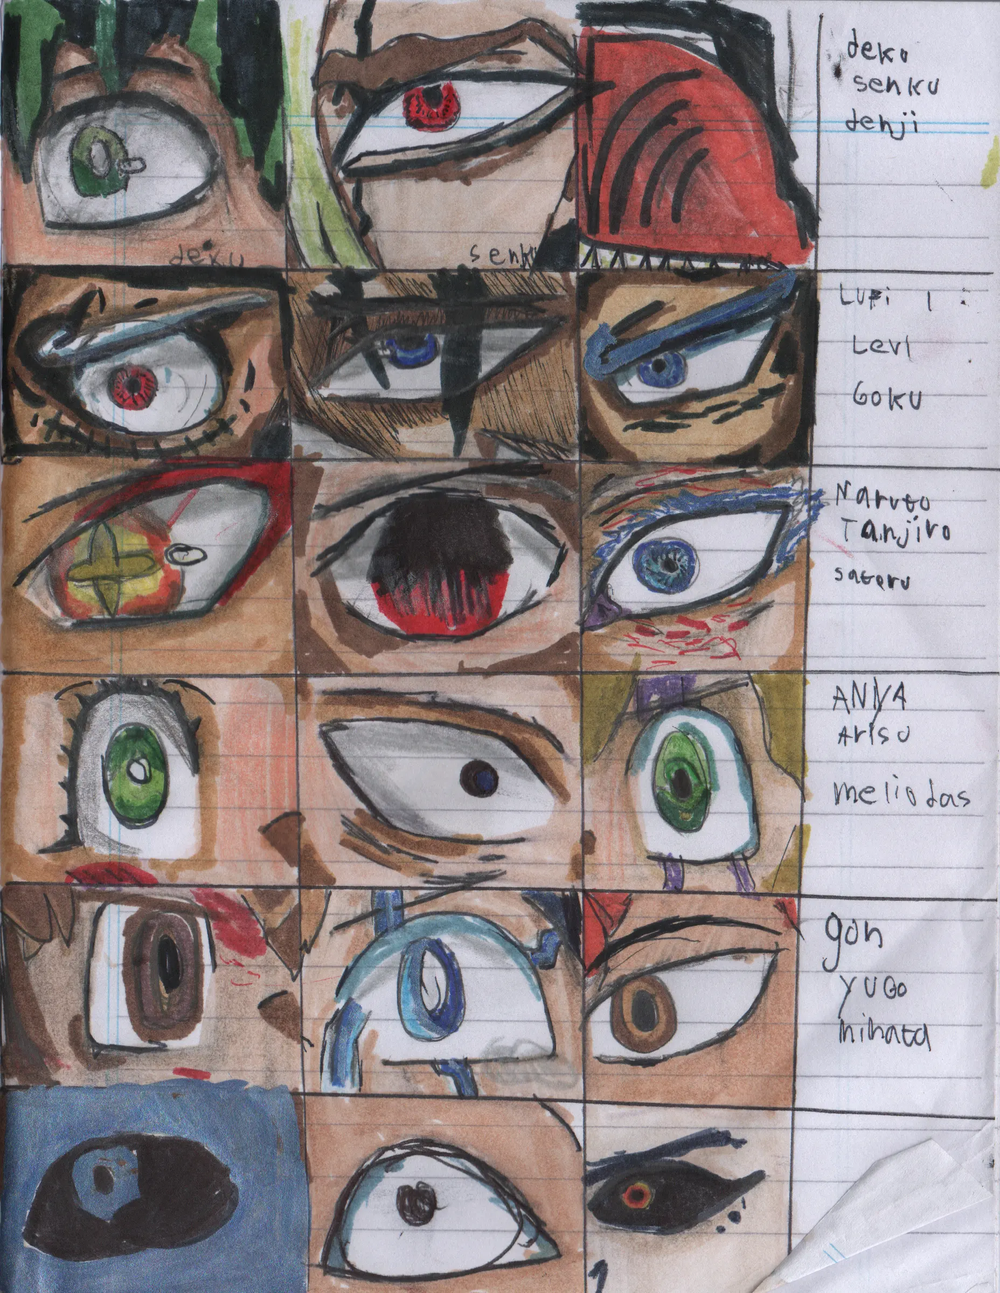 deku
senku
denji
deku
senku
Lufi
Levi
GOKU
Naruto
Tanjiro
satoru
ANYA
Arisu
meliodas
gon
YUGO
hinata